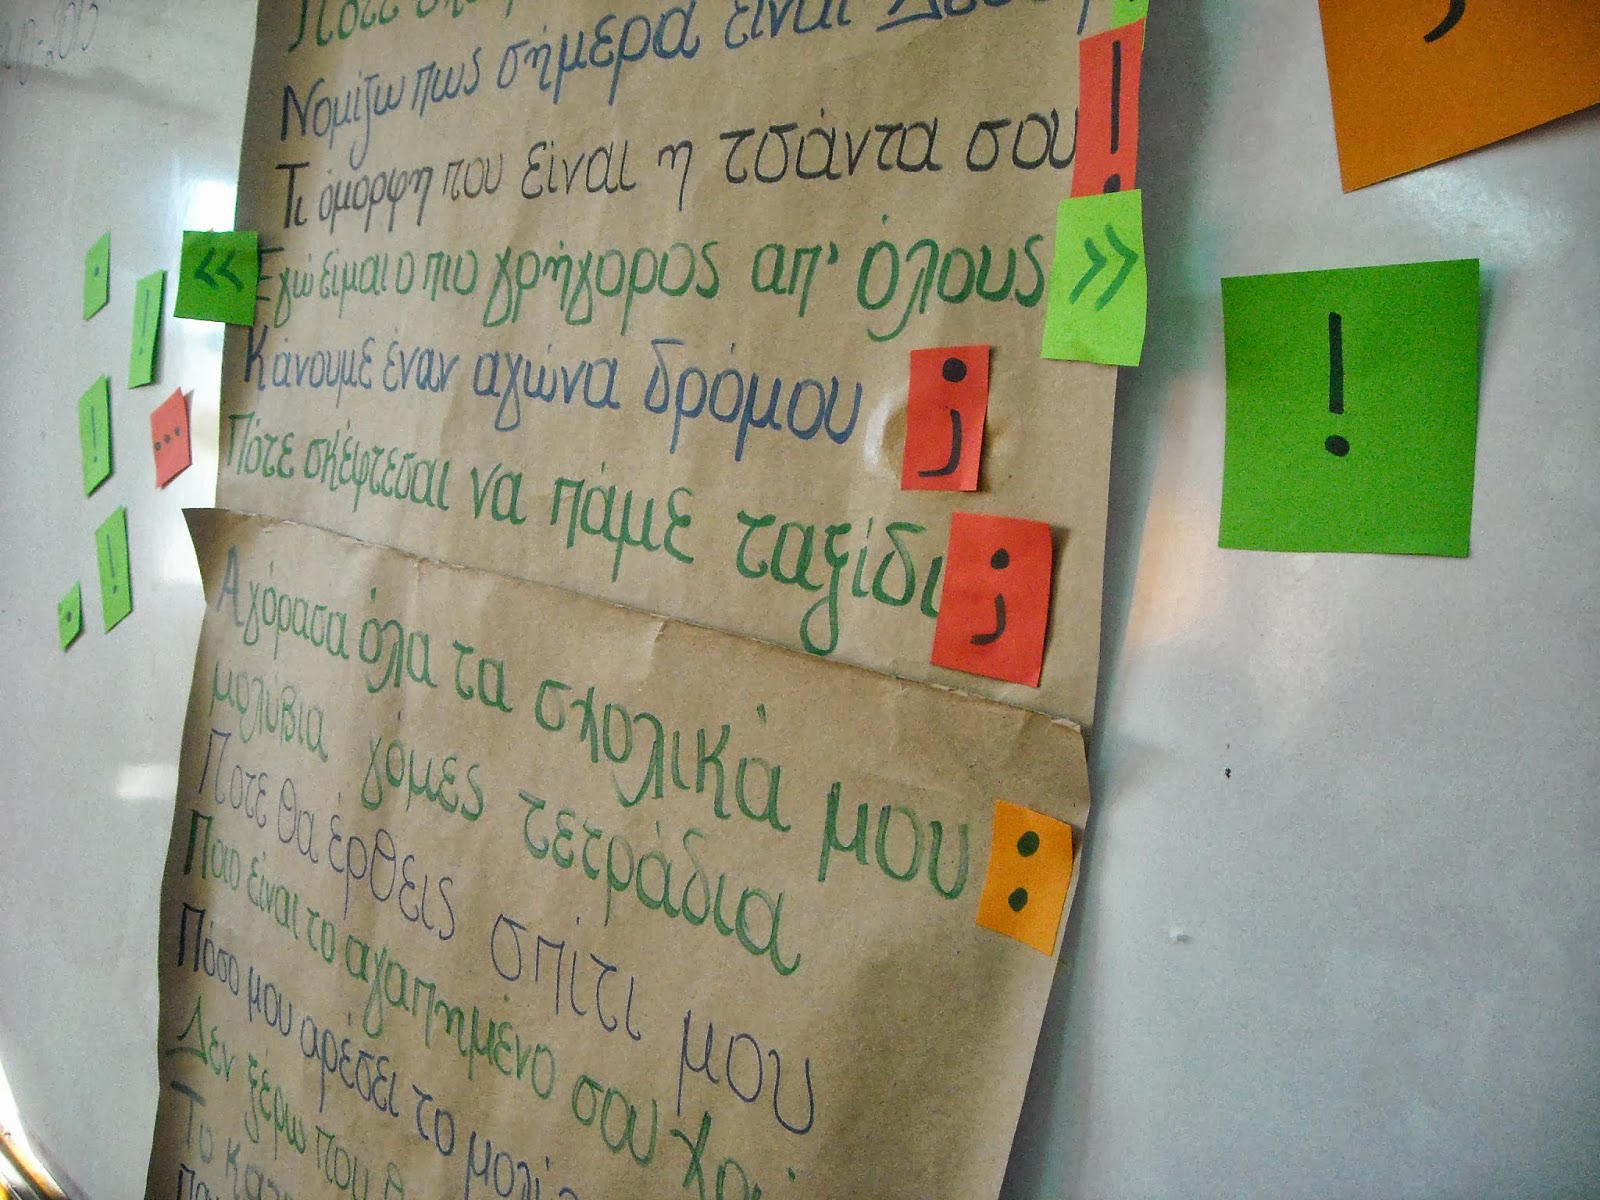 Πότε
Νομίζω πως σήμερα είναι
Τι όμορφη που είναι η τσάντα σου !
« Εγώ είμαι ο πιο γρήγορος απ' όλους »
Κάνουμε έναν αγώνα δρόμου ;
Πότε σκέφτεσαι να πάμε ταξίδι ;
Αγόρασα όλα τα σχολικά μου :
μολύβια γόμες τετράδια
Ποτε θα έρθεις σπίτι μου
Ποιο είναι το αγαπημένο σου
Πόσο μου αρέσει το
Δεν ξέρω που
Το
.
!
!
...
!
.
!